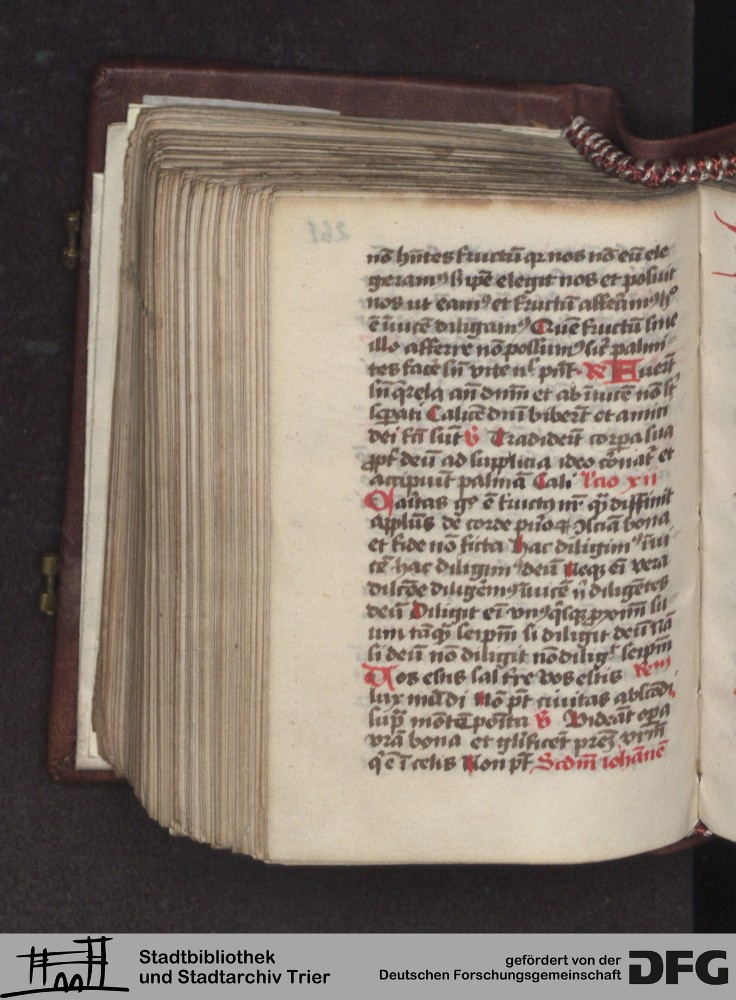 nō hn̄tes fructū qr nos nō eū ele
geramꝰ sꝫ ip̄e elegit nos et posuit
nos ut eamꝰ et fructū afferamꝰ hͦ
ē īuicē diligamꝰ Que fructū sine
illo afferre nō possumꝰ sic̄ palmi
tes facē sn̄ vite nl̄ pn̄t R Fuert̄
sn̄ q̄rela an̄ dn̄m et ab īuicē nō st̄
sep̄ati Calicē dn̄i biberūt et amici
dei fc̄i sūt v̄ Tradiderūt corpa sua
ꝓpt̄ deū ad supplicia ideo coronāt̄ et
accipiūt palmā Cali lc̄io xii
Caritas gͦ ē fructꝰ nr̄ quā diffinit
apl̄us de corde puro ⁊ ꝯsciā bona
et fide nō ficta hac diligimꝰ īui
cē hac diligimꝰ deū Neqꝫ eī vera
dilcōe diligēmꝰ īuicē n̄ diligētes
deū Diligit eī vnꝰq̄sqꝫ ꝓximū su
um tāqͣ seip̄m si diligit deū nā
si deū nō diligit nō diligͭ seip̄m
Vos estis sal tr̄e vos estis Rem
lux mūdi Nō pt̄ ciuitas abscōdi
supͣ montē posita v̄ Videāt opa
vr̄a bona et glīficēt prēꝫ vrm̄
q̄ ē ī celis Non pt̄ Scdm̄ iohānē
Stadtbibliothek
und Stadtarchiv Trier
gefördert von der
Deutschen Forschungsgemeinschaft
DFG